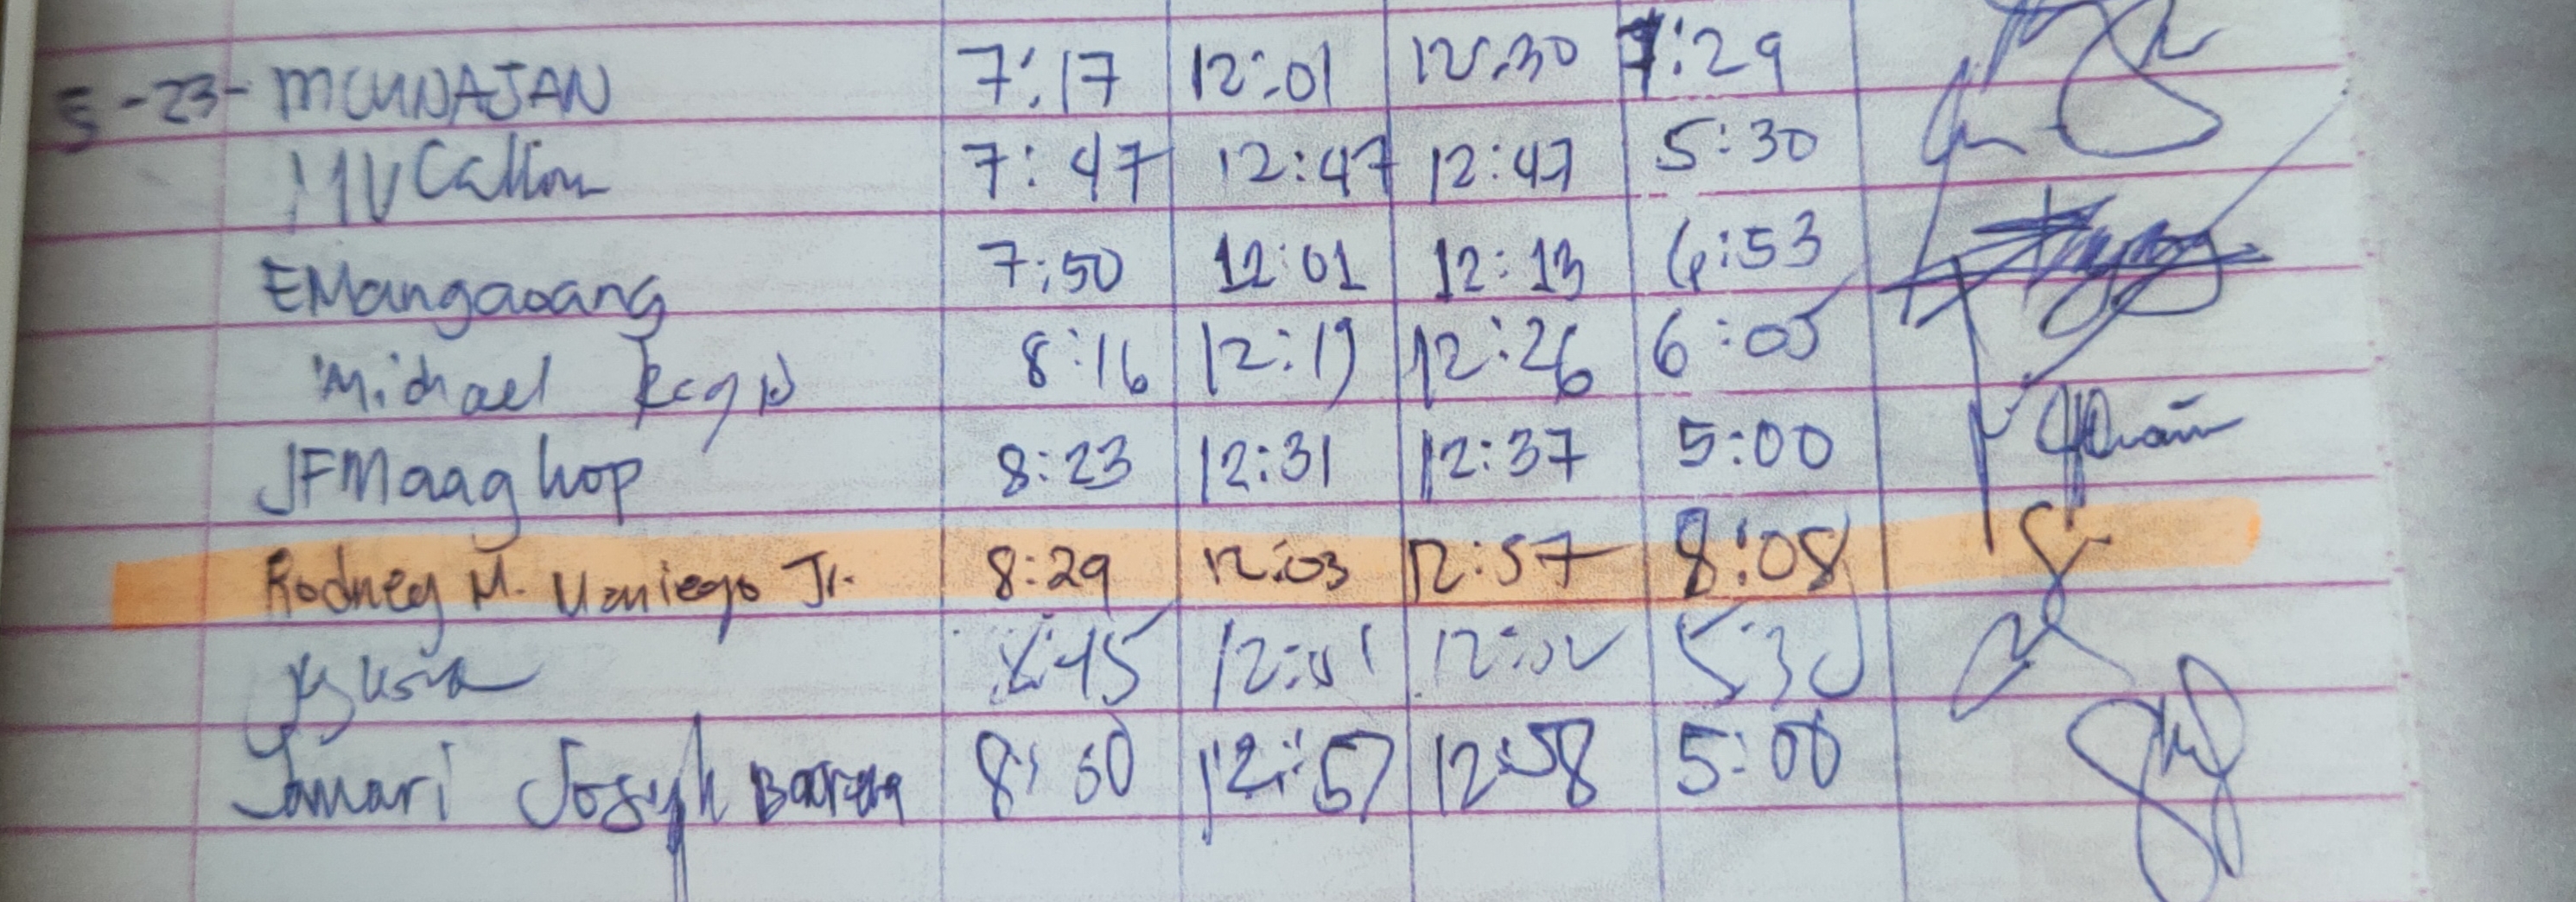 5-23- MCUNAJAN 7:17 12:01 12:30 7:29
MV 7:47 12:47 12:47 5:30
EMangaoang 7:50 12:01 12:13 6:53
Michael 8:16 12:19 12:26 6:05
JFMaaghop 8:23 12:31 12:37 5:00
Rodney M. Maniego Jr. 8:29 12:03 12:57 8:08
8:45 12:01 12:02 5:30
Jamari Joseph 8:50 12:57 12:58 5:00